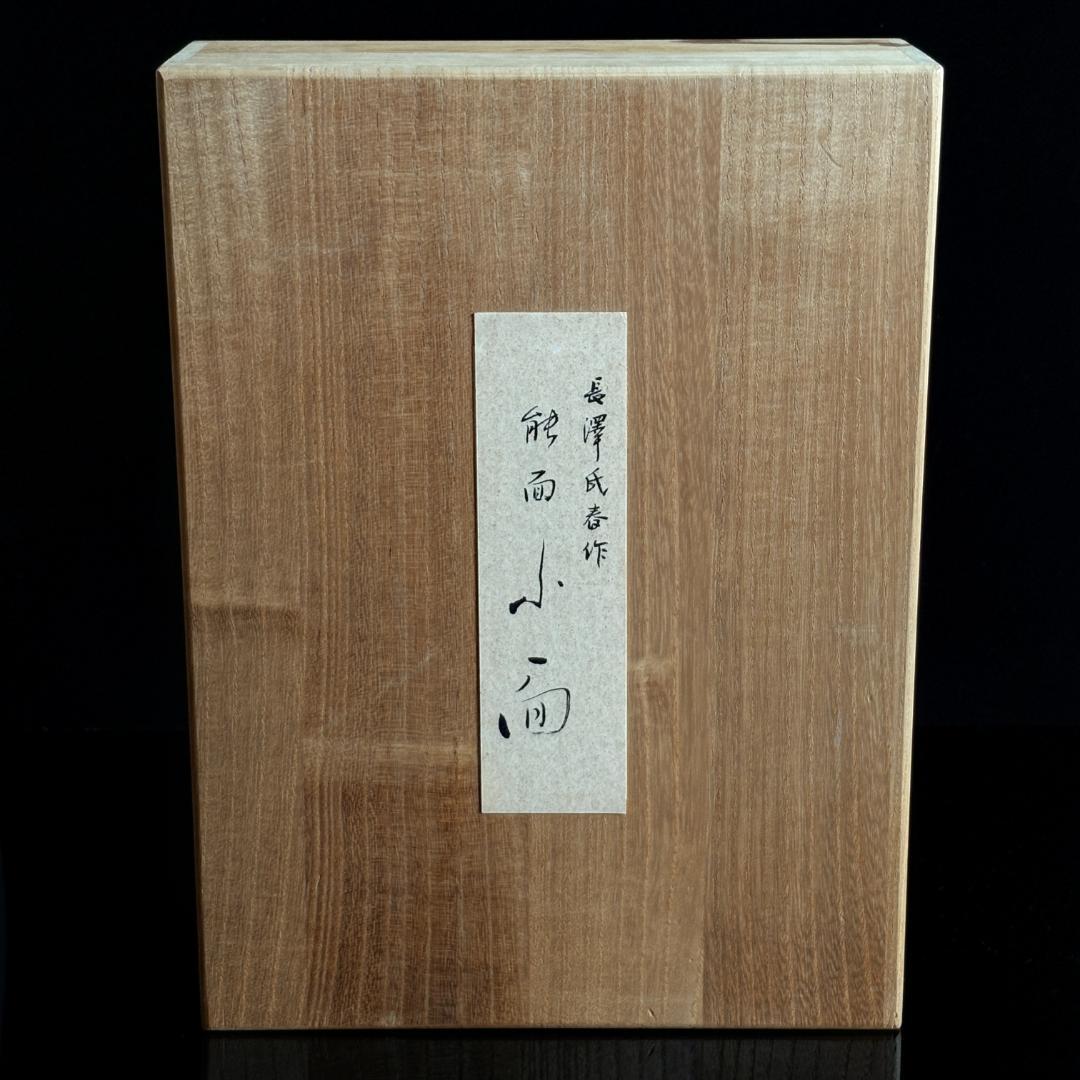 長澤氏春作
能面小面